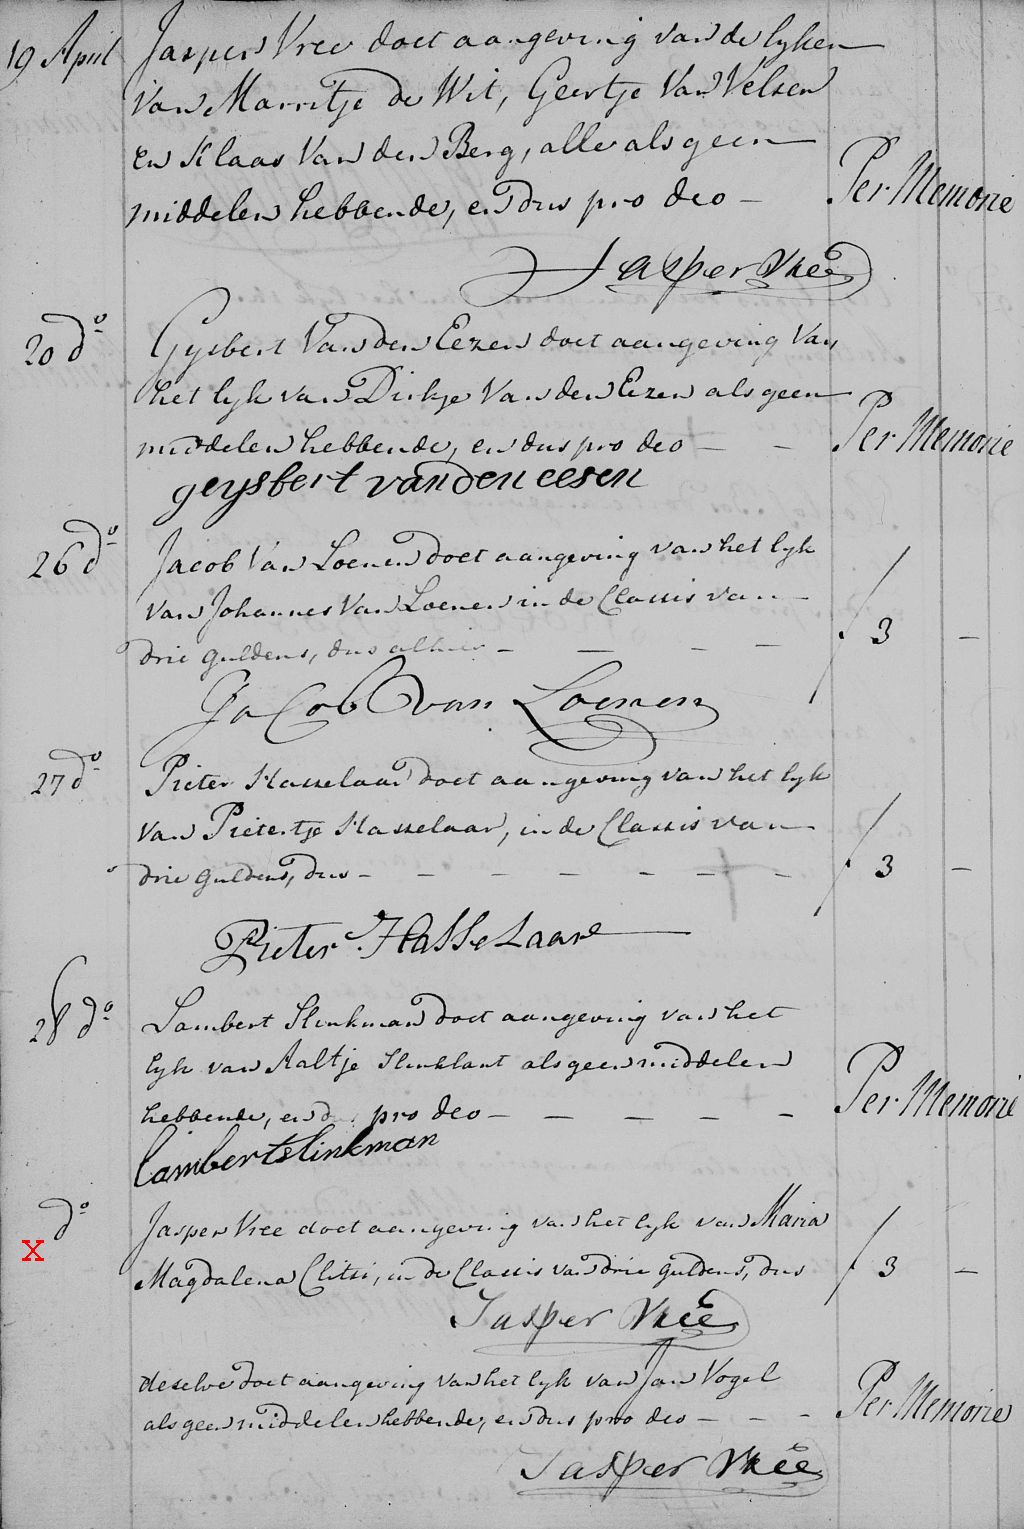 19 April Jasper Vree doet aangeving van de lyken
van Marritje de Wit, Geertje Van Velsen
en Klaas Van den Berg, alle als geen
middelen hebbende, en dus pro deo — Per Memorie
Jasper Vreé
20 do Gysbert Van den Eezen doet aangeving van
het lyk van Dirkje Van den Eezen als geen
middelen hebbende, en dus pro deo — — Per Memorie
geysbert van den eesen
26 do Jacob Van Loenen doet aangeving van het lyk
van Johannes Van Loenen in de Classis van
drie guldens, dus alhier — — — — f 3 —
Jacob van Loenen
27 do Pieter Hasselaar doet aangeving van het lyk
van Pietertje Hasselaar, in de Classis van
drie guldens, dus — — — — — — — f 3 —
Pieter Hasselaar
28 do Lambert Slinkman doet aangeving van het
lyk van Aaltje als geen middelen
hebbende, en d pro deo — — — — — Per Memorie
Lambert slinkman
do Jasper Vree doet aangeving van het lyk van Maria
X
Magdalena in de Classis van drie guldens, dus f 3 —
Jasper Vreé
deselve doet aangeving van het lyk van Jan Vogel
als geen middelen hebbende, en dus pro deo — — — Per Memorie
Jasper Vreé